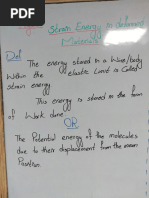 Strain Energy in deformed
Materials
Def
The energy stored in a Wire/body
Within the elastic Limit is Called
strain energy
This energy is stored in the form
of Work done
OR
The Potential energy of the molecules
due to their displacement from the mean
Position.